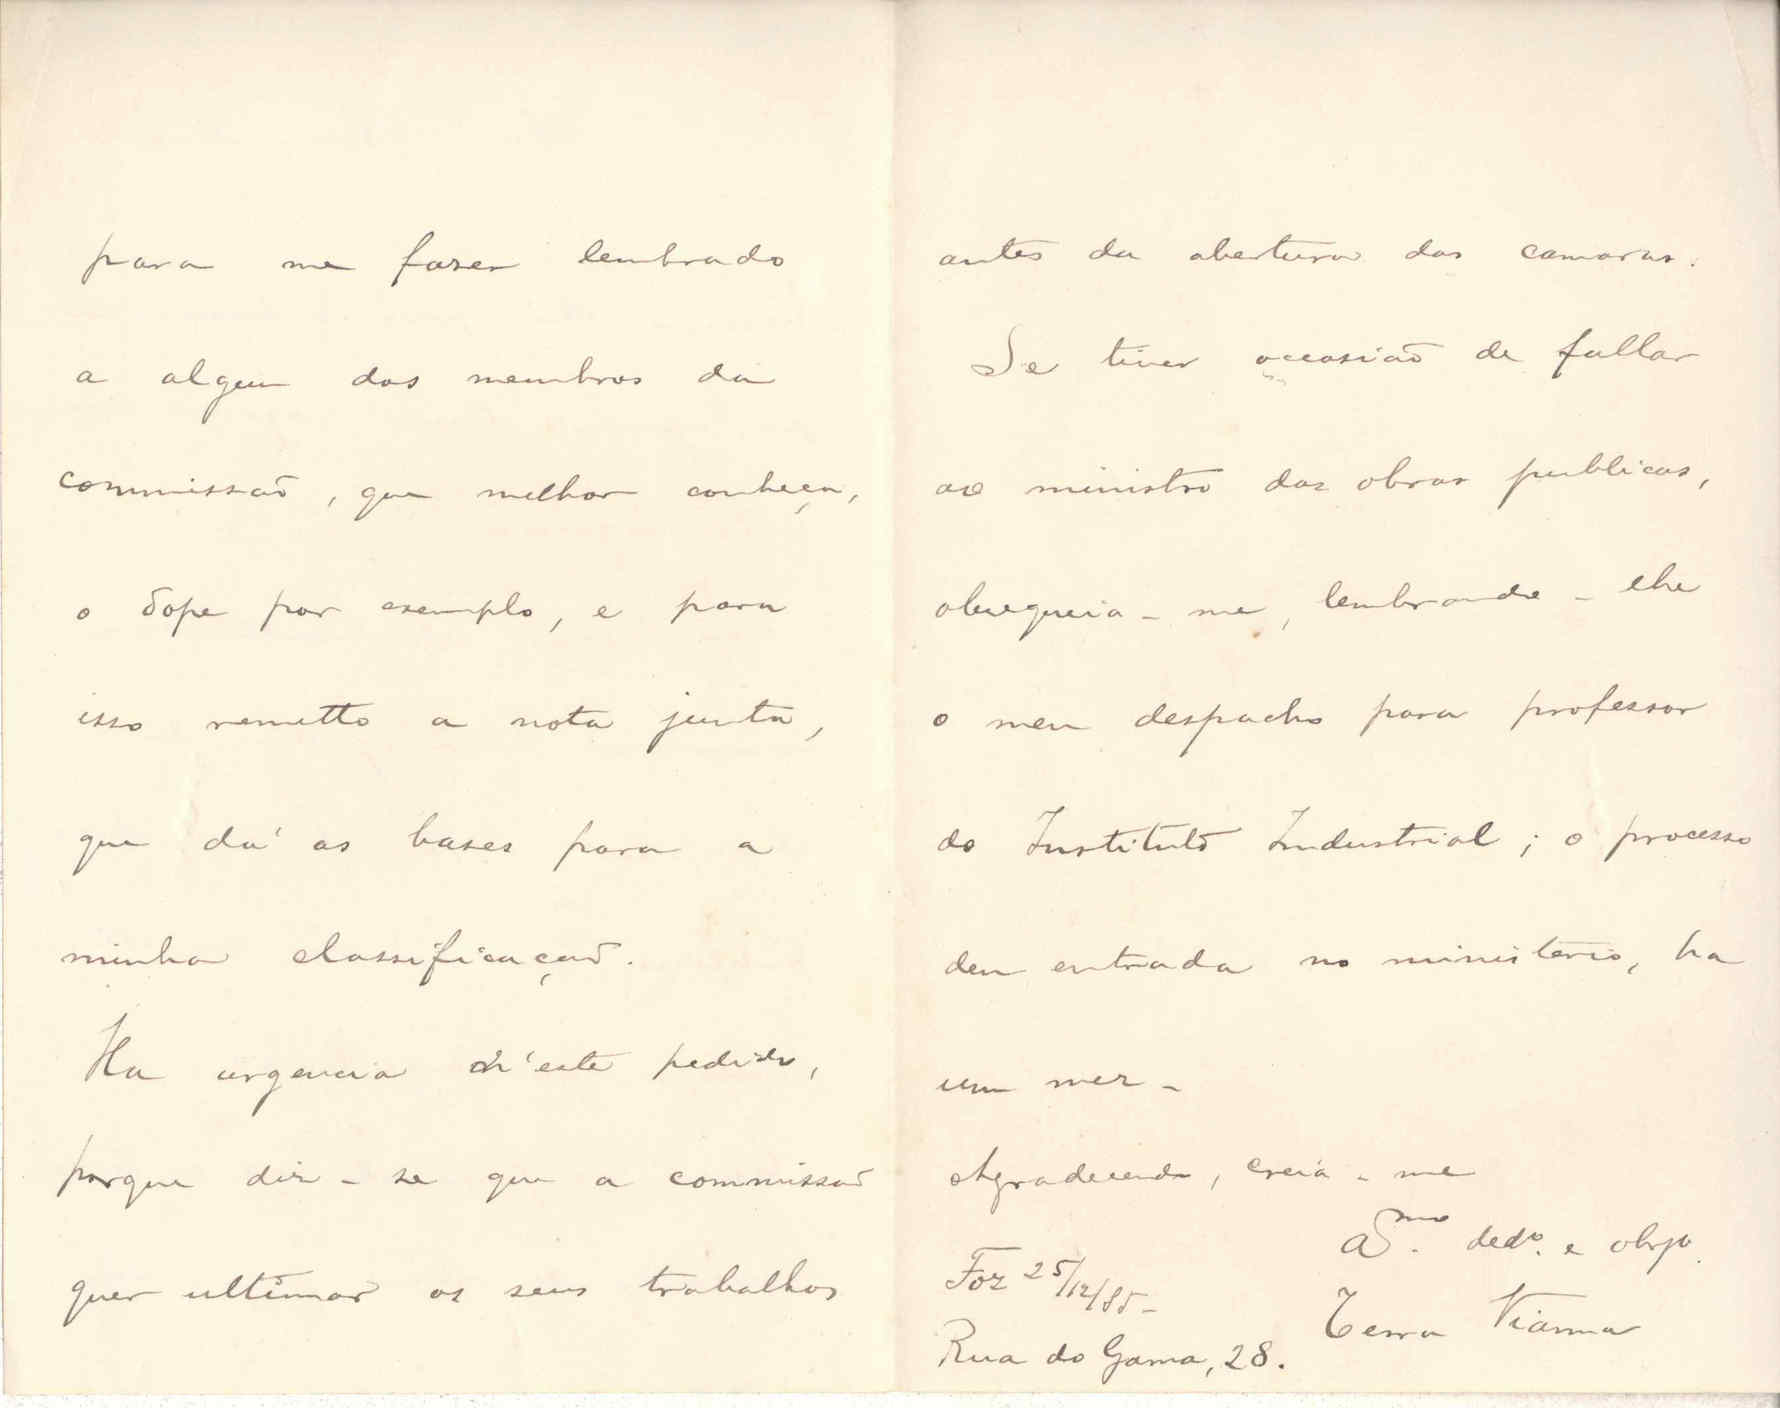 para me fazer lembrado
a algum dos membros da
commissão, que melhor conheça,
o por exemplo, e para
isso remetto a nota junta,
que dá as bases para a
minha classificação.
Ha urgencia n'este pedido,
porque diz-se que a commissão
quer ultimar os seus trabalhos
antes da abertura das camaras.
Se tiver occasião de fallar
ao ministro das obras publicas,
obsequeia-me, lembrando-lhe
o meu despacho para professor
do Instituto Industrial; o processo
deu entrada no ministerio, ha
um mez-
Agradecendo, creia-me
Amº. dedº. e obrgº.
Foz 25/12/85-
Terra Vianna
Rua do Gama, 28.